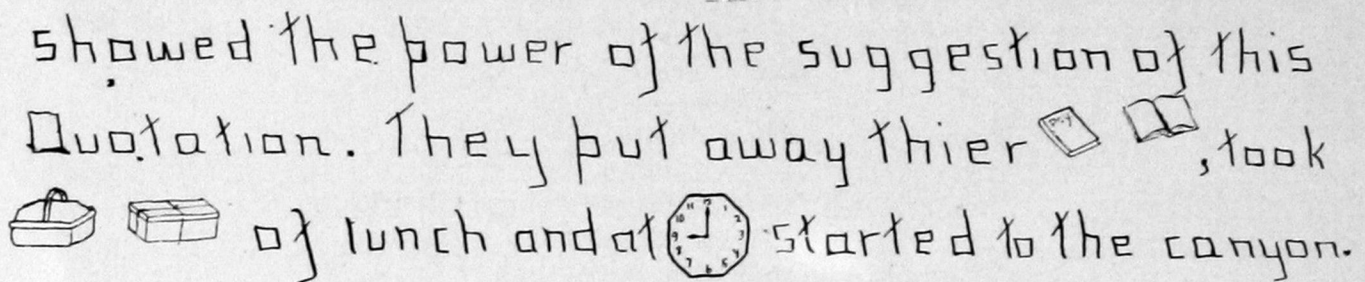 showed the power of the suggestion of this
Quotation. They put away thier , took
of lunch and at started to the canyon.